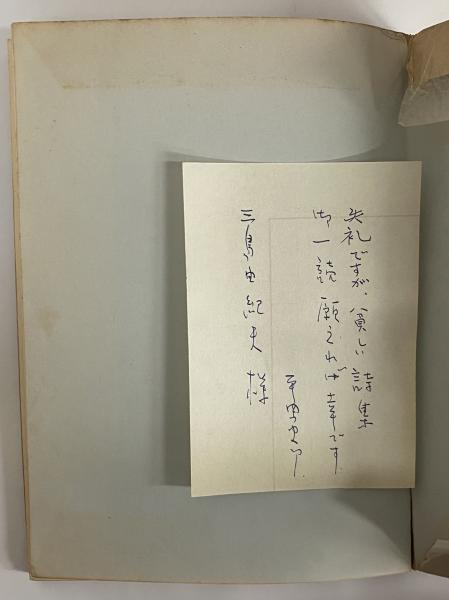 失礼ですが、貧しい詩集
御一読願えれば幸です。
平田
三島由紀夫様